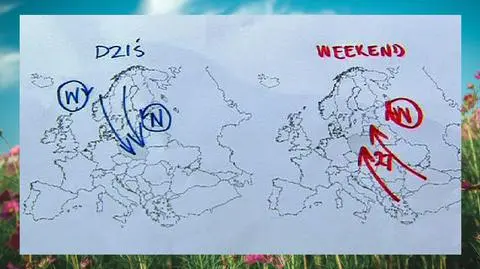 DZIŚ
W
N
WEEKEND
W
N